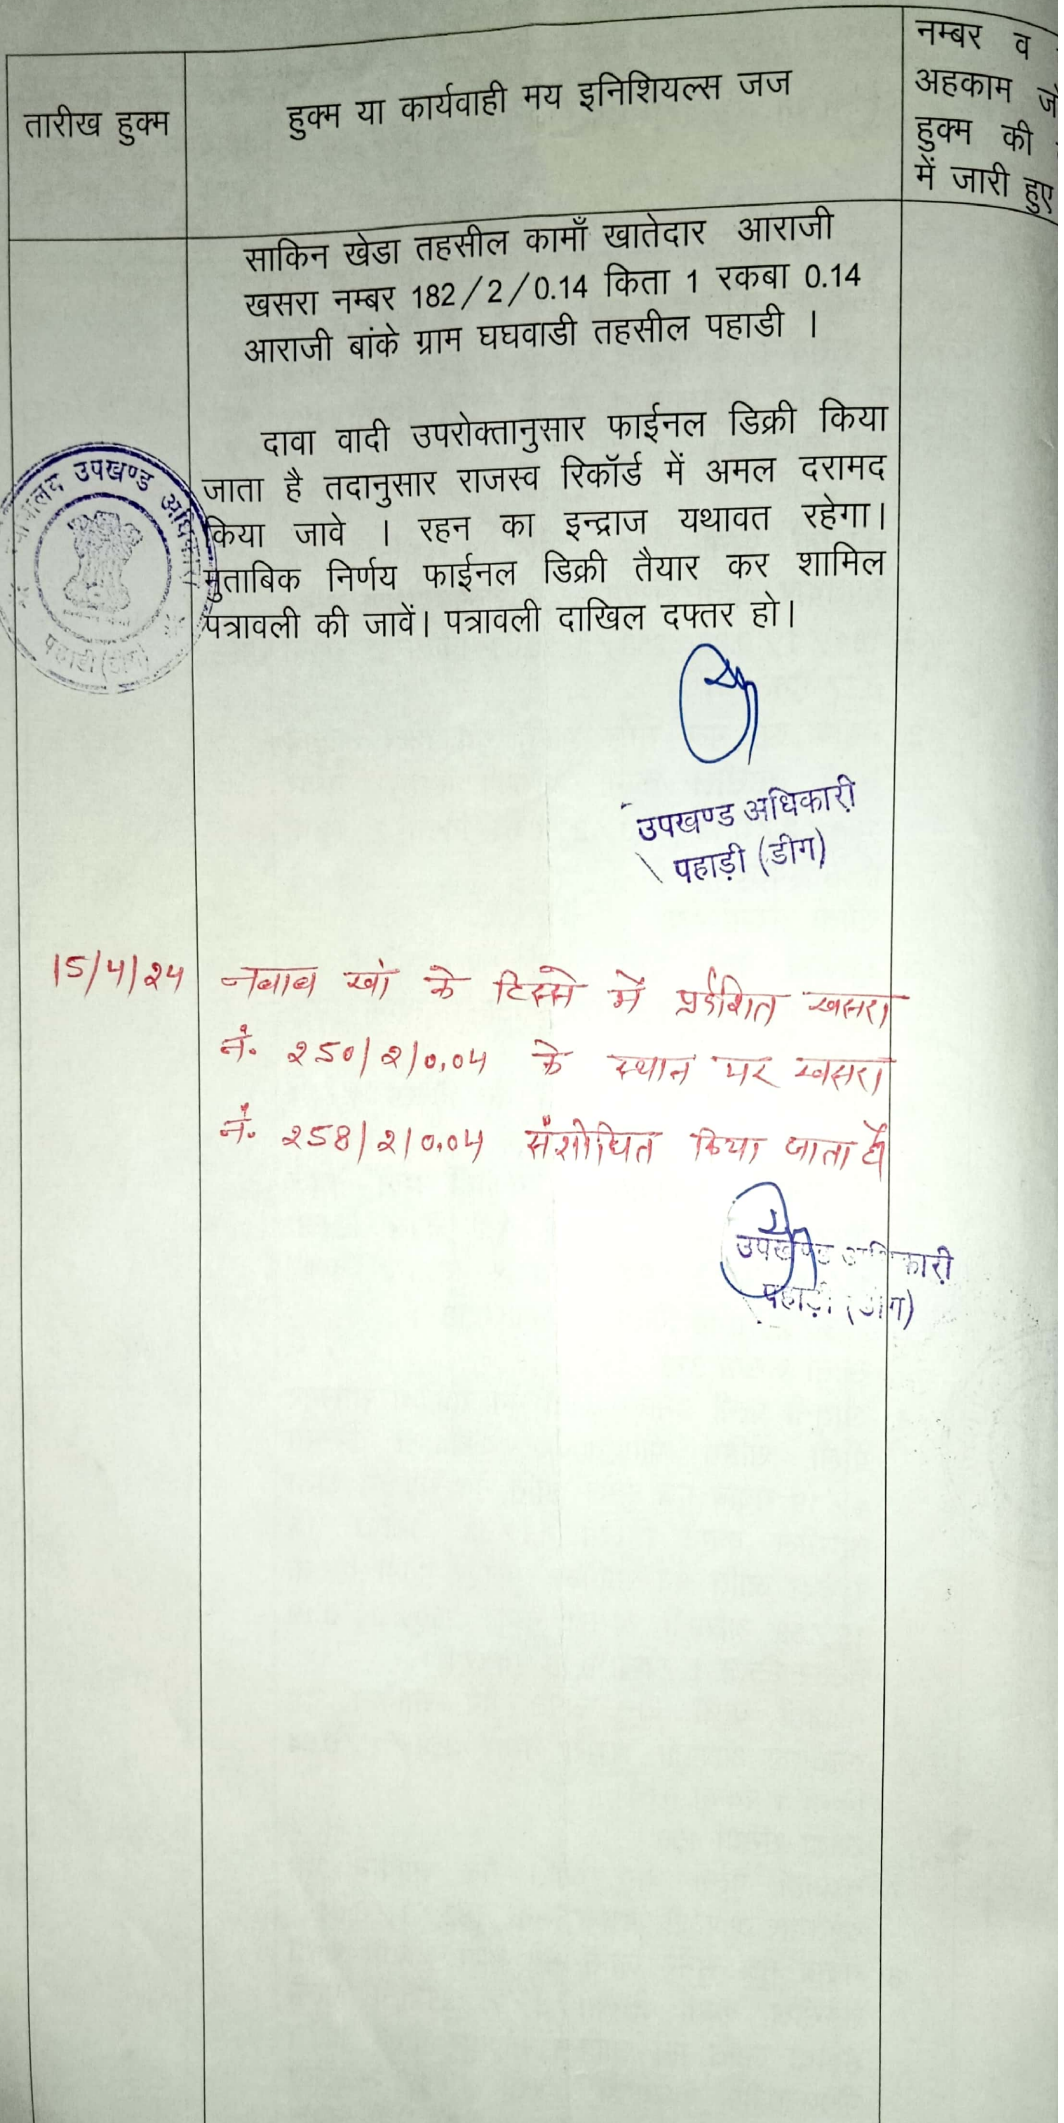 तारीख हुक्म
हुक्म या कार्यवाही मय इनिशियल्स जज
नम्बर व
अहकाम
हुक्म की
में जारी हुए
साकिन खेडा तहसील कामाँ खातेदार आराजी
खसरा नम्बर 182/2/0.14 किता 1 रकबा 0.14
आराजी बांके ग्राम घघवाडी तहसील पहाडी ।
दावा वादी उपरोक्तानुसार फाईनल डिक्री किया
जाता है तदानुसार राजस्व रिकॉर्ड में अमल दरामद
किया जावे । रहन का इन्द्राज यथावत रहेगा।
मुताबिक निर्णय फाईनल डिक्री तैयार कर शामिल
पत्रावली की जावें। पत्रावली दाखिल दफ्तर हो।
उपखण्ड
पहाडी (डीग)
उपखण्ड अधिकारी
पहाड़ी (डीग)
15/4/२४ नबाब खां के हिस्से में खसरा
नं. २50/२/0.04 के स्थान पर खसरा
नं. २58/२/0.04 संशोधित किया जाता है
उपखण्ड अधिकारी
पहाड़ी (डीग)